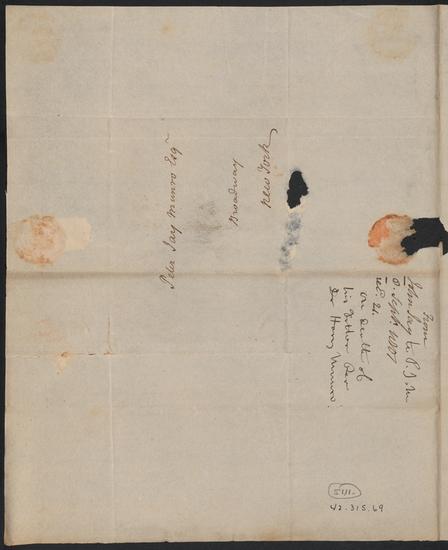 Peter Jay Munro Esqr
Broadway
New York
From
John Jay to P. J. M
Sept. 1801
on death of
his Father Rev
Dr Harry Munro
42.315.69